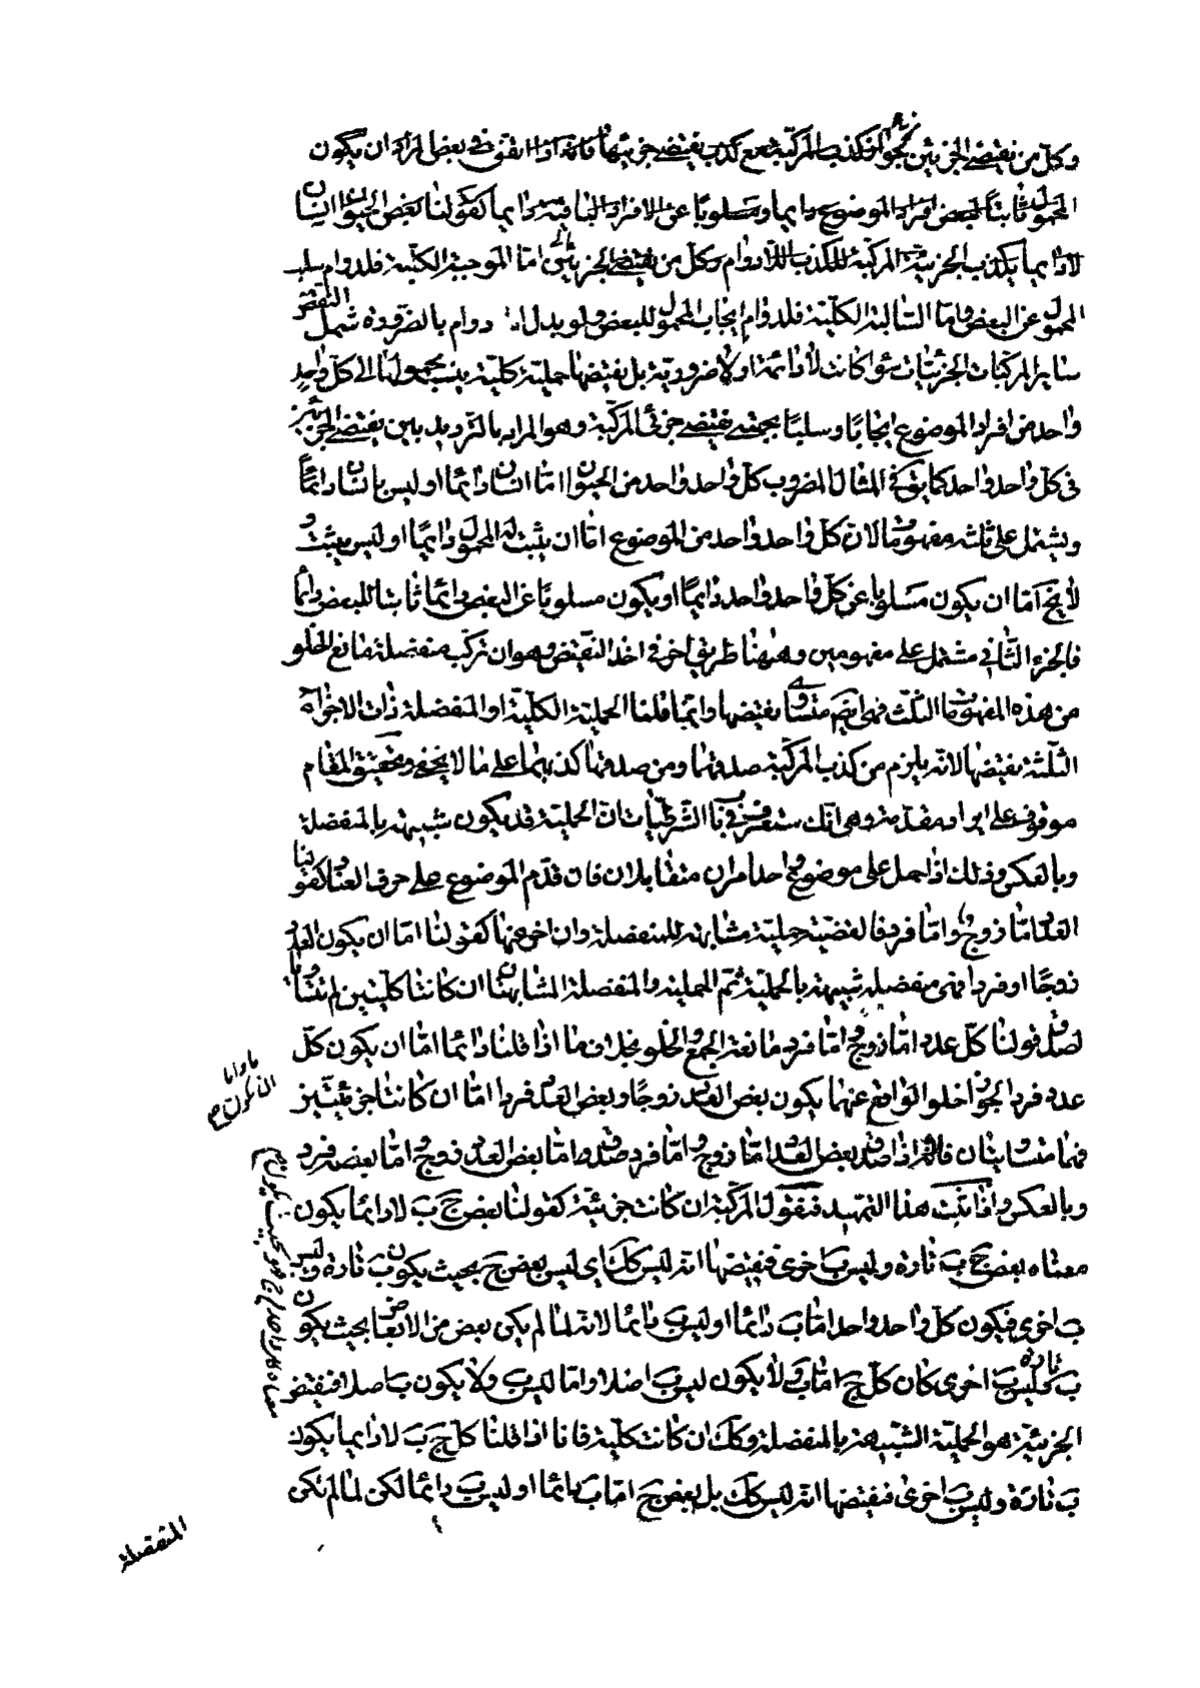 وكل من نقيضى الجزئين لجواز كذب المركبة مع كذب نقيضى جزئيها فانه اذا اتفق فى بعض المواد ان يكون
المحمول ثابتًا لبعض افراد الموضوع دايما ومسلوبًا عن الافراد الباقية دايما كقولنا بعض الحيوان انسان
لا دايما يكذب الجزئية المركبة لكذب اللادوام وكل من نقيضى الجزئين اما الموجبة الكلية فلدوام سلب
المحمول عن البعض واما السالبة الكلية فلدوام ايجاب المحمول للبعض ولو بدل اللادوام بالضرورة شمل النقض
ساير المركبات الجزئيات سواء كانت لا دائمة او لا ضرورية بل نقيضها حملية كلية ينسب محمولها الى كل واحد
واحد من افراد الموضوع ايجابًا وسلبًا بجهتى نقيضى جزئى المركبة وهو المراد بالترديد بين نقيضى الجزئين
فى كل واحد واحد كما يق فى المثال المضروب كل واحد واحد من الحيوان اما انسان دائما او ليس بانسان دائمًا
ويشتمل على ثلثه مفهومات لان كل واحد واحد من الموضوع اما ان يثبت له المحمول دايمًا او ليس يثبت و
لا يخ اما ان يكون مسلوبا عن كل واحد واحد دايمًا او يكون مسلوبًا عن البعض دائمًا ثابتا للبعض دائمًا
فالجزء الثانى مشتمل على مفهومين وههنا طريق اخر فى اخذ النقيض وهو ان تركب منفصلة مانع الخلو
من هذه المفهومات الثلث فهى ايضم متساوى نقيضها وايما قلنا الحملية الكلية او المنفصلة ذات الاجزاء
الثلثة نقيضها لانه يلزم من كذب المركبة صدقها ومن صدقها كذبهما على ما لا يخفى وتحقيق المقام
موقوف على ايراد مقدمة وهى انك ستعرف فى باب الشرطيات ان الحملية قد يكون شبيهة بالمنفصلة
وبالعكس وذلك اذا حمل على موضوع واحد امران متقابلان فان قدم الموضوع على حرف العناد كقولنا
العدد اما زوج واما فرد فالقضية حملية مشابهة للمنفصلة وان اخر عنها كقولنا اما ان يكون العدد
زوجًا او فردا فهى منفصلة شبيهة بالحملية ثم الحملية والمنفصلة المشابهتان ان كانتا كليتين لم يتساويا
لصدق قولنا كل عدد اما زوج واما فرد مانعة الجمع والخلو بخلاف ما اذا قلنا دائما اما ان يكون كل
عدد فردا لجواز خلو الواقع عنهما يكون بعض العدد زوجًا وبعض العدد فردا اما ان كانتا جزئيتين
فهما متساويتان فانه اذا صدق بعض العدد اما زوج واما فرد صدق واما بعض العدد زوج واما بعضه فرد
وبالعكس واذا ثبت هذا التمهيد فنقول المركبة ان كانت جزئية كقولنا بعض ج ب لا دايما يكون
معناه بعض ج ب تارة وليس ب اخرى فنقيضها انه ليس كك اى ليس بعض ج بحيث يكون ب تارة وليس
ب اخرى فيكون كل واحد واحد اما ب دائما او ليس ب دائما لانه لما لم يكن بعض من الابعاض بحيث يكون
ب تارة وليس ب اخرى كان كل ج اما ب ولا يكون ليس ب اصلا واما ليس ب ولا يكون ب اصلا فنقيض
الجزئية هو الحملية الشبيهة بالمنفصلة وكك ان كانت كلية فانا اذا قلنا كل ج ب لا دايما يكون
ب تارة وليس ب اخرى فنقيضها انه ليس كك بل بعض ج اما ب دائما او ليس ب دائما لكن لما لم يكن
المنفصلة